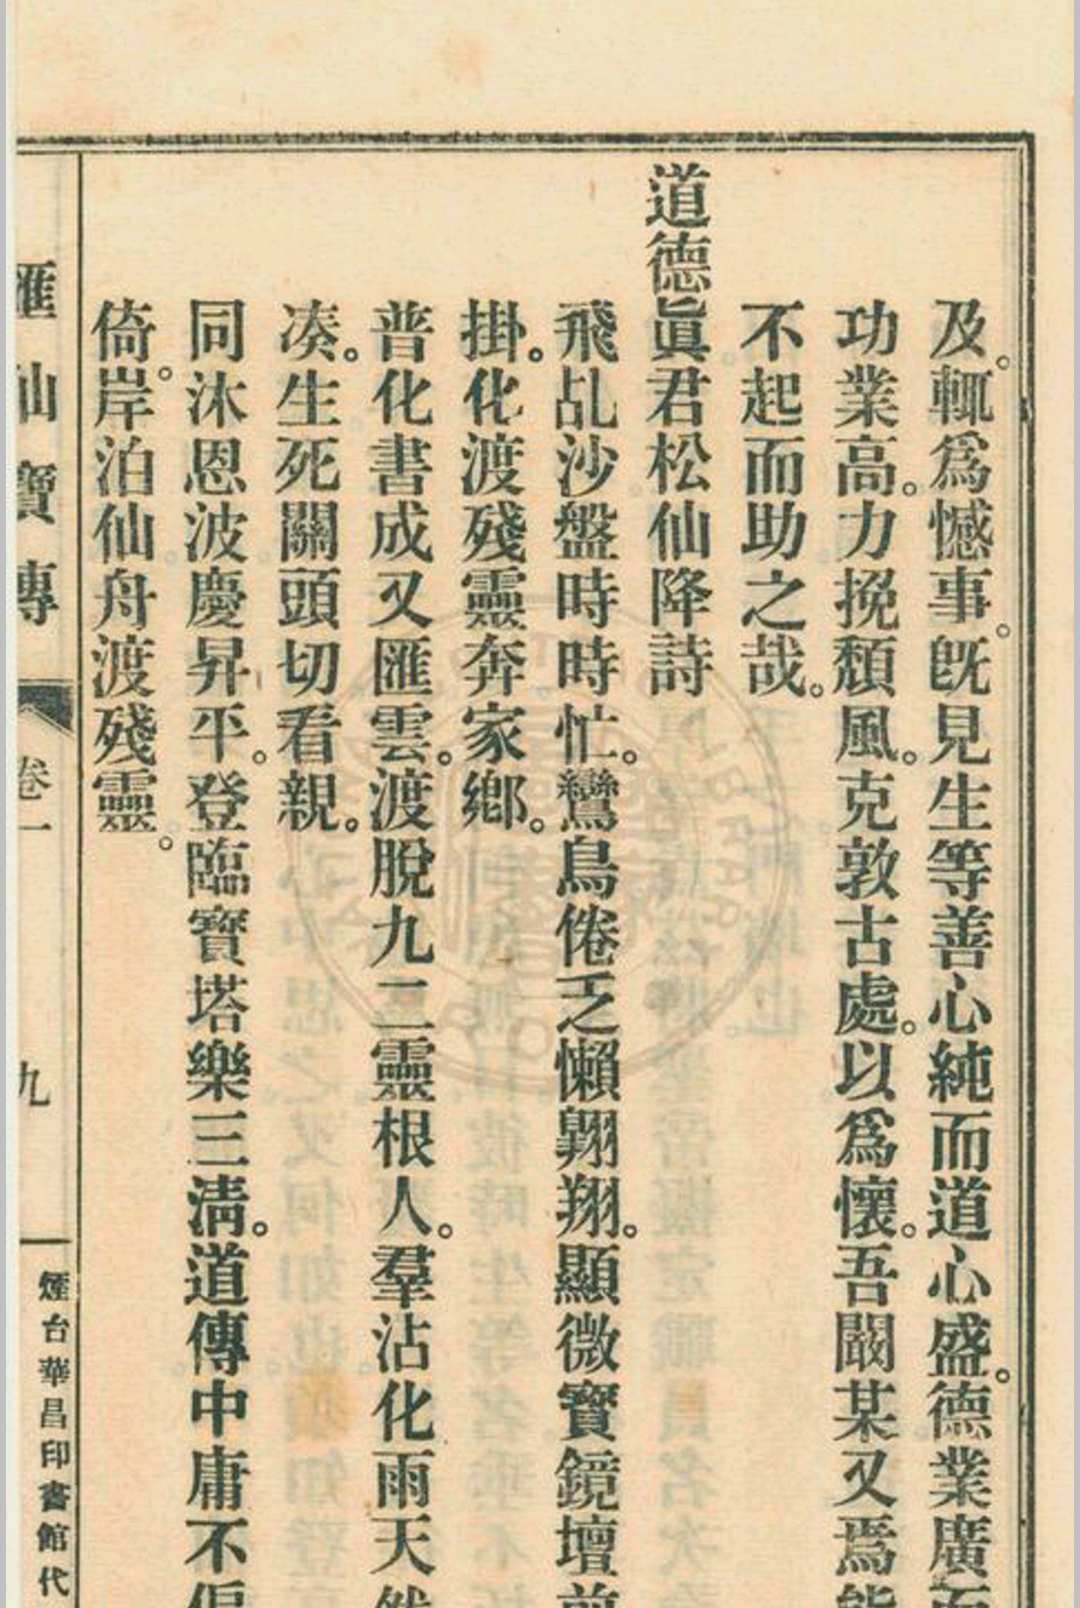 及。輒爲憾事。既見生等善心純而道心盛。德業廣而
功業高。力挽頹風。克敦古處。以爲懷。吾闞某又焉能
不起而助之哉。
道德眞君松仙降詩
飛乩沙盤時時忙。鸞鳥倦乏懶翺翔。顯微寶鏡壇前
掛。化渡殘靈奔家鄉。
普化書成又匯雲。渡脫九二靈根人。羣沾化雨天然
凑。生死關頭切看親。
同沐恩波慶昇平。登臨寶塔樂三淸。道傳中庸不偏
倚。岸泊仙舟渡殘靈。
匯仙寶傳
卷一
九
煙台華昌印書館代